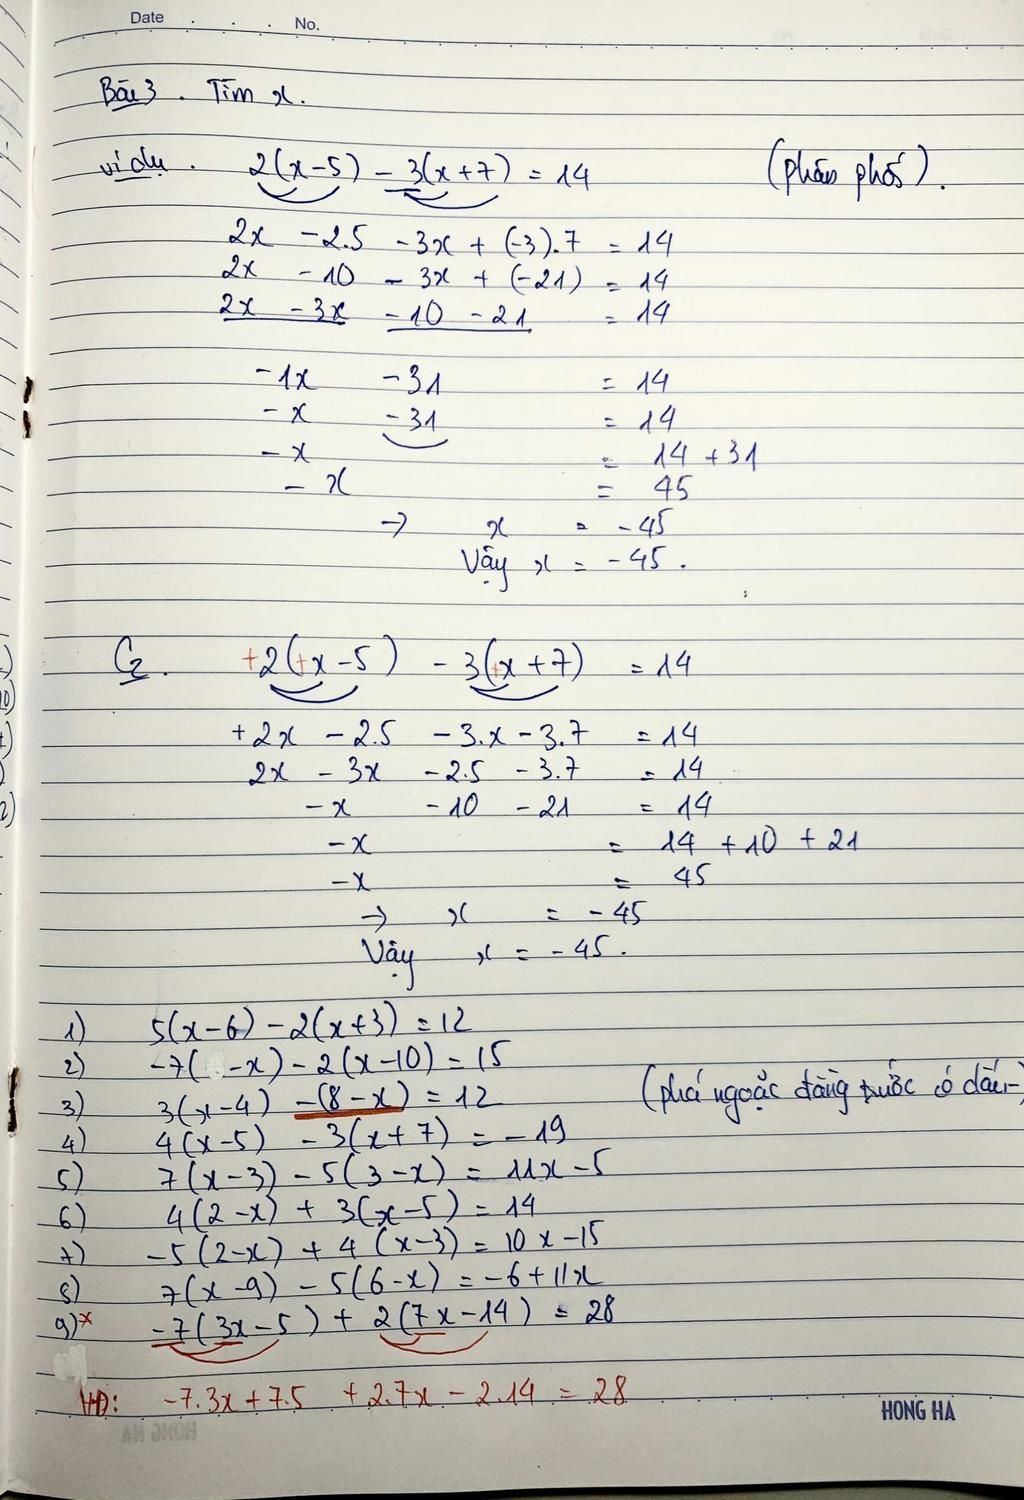 Date . . . No.
Bài 3 . Tìm x.
ví dụ . 2(x-5) - 3(x+7) = 14 (phân phối).
2x - 2.5 - 3x + (-3).7 = 14
2x - 10 - 3x + (-21) = 14
2x - 3x - 10 - 21 = 14
-1x - 31 = 14
- x - 31 = 14
- x = 14 + 31
- x = 45
→ x = - 45
Vậy x = - 45 .
C2. +2(+x-5) - 3(+x+7) = 14
+2x - 2.5 - 3.x - 3.7 = 14
2x - 3x - 2.5 - 3.7 = 14
- x - 10 - 21 = 14
- x = 14 + 10 + 21
- x = 45
→ x = - 45
Vậy x = - 45 .
1) 5(x-6) - 2(x+3) = 12
2) -7( -x) - 2(x-10) = 15
3) 3(x-4) -(8-x) = 12 (phá ngoặc đằng trước có dấu -)
4) 4(x-5) - 3(x+7) = -19
5) 7(x-3) - 5(3-x) = 11x - 5
6) 4(2-x) + 3(x-5) = 14
7) -5(2-x) + 4(x-3) = 10x - 15
8) 7(x-9) - 5(6-x) = -6 + 11x
9)* -7(3x-5) + 2(7x-14) = 28
HD: -7.3x + 7.5 + 2.7x - 2.14 = 28
HONG HA